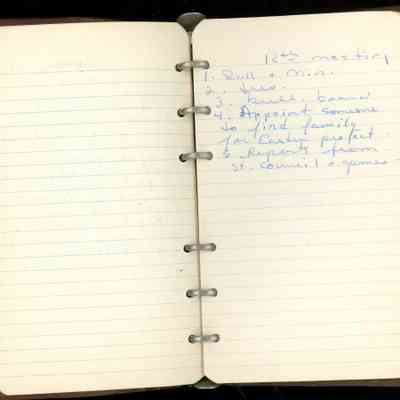 12th meeting
1. Roll & Min.
2. Treas.
3. board
4. Appoint someone
to find family
for Easter project.
5. Reports from
St. Council & games